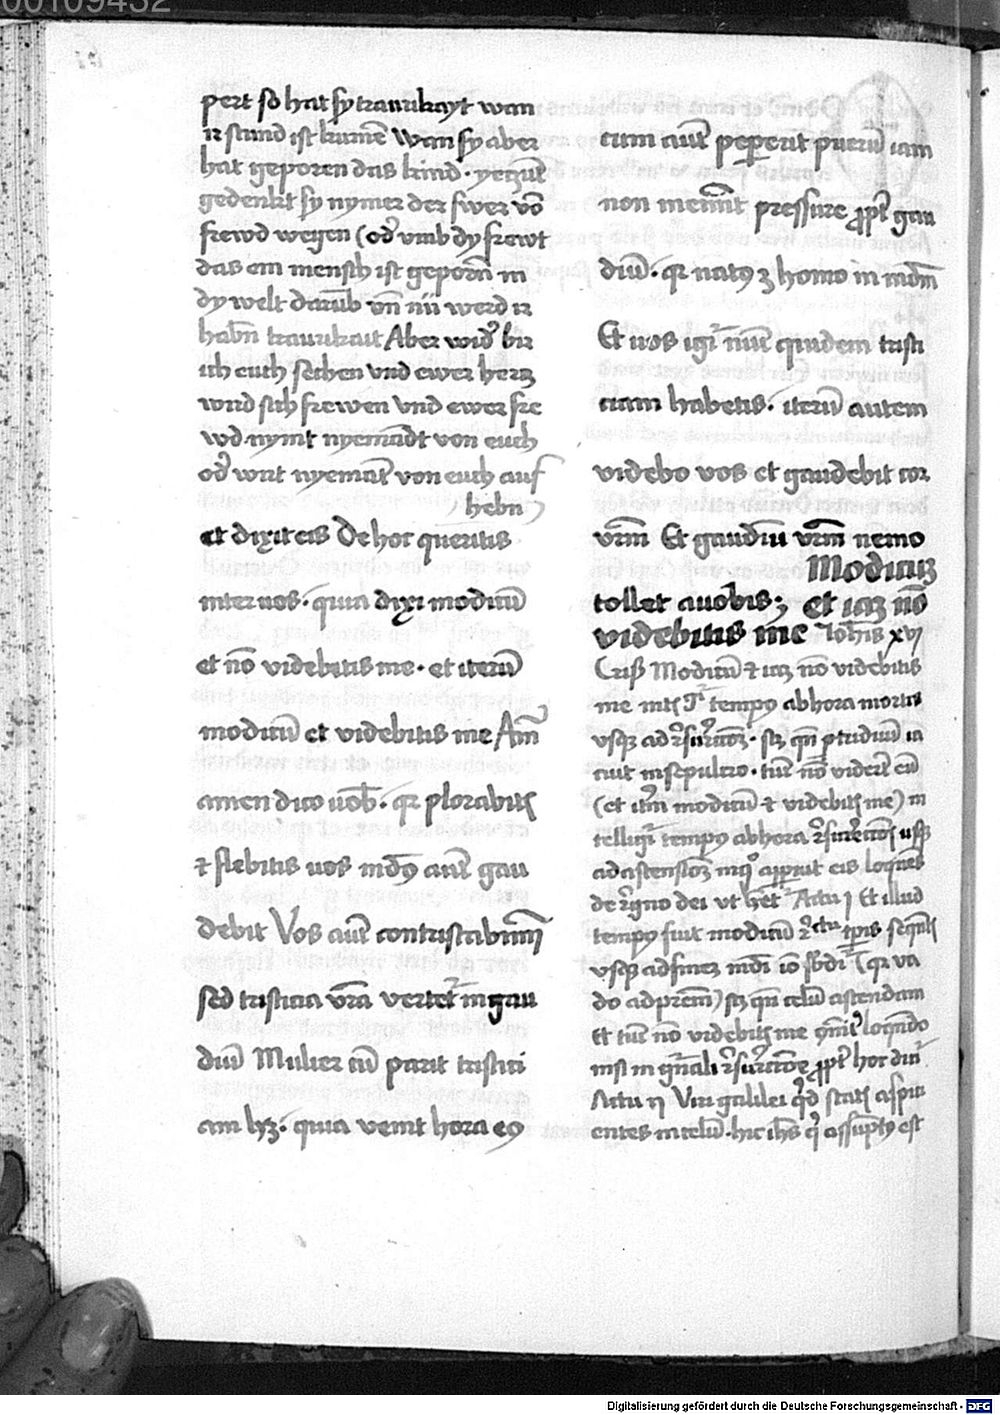 00109432
pert so hat sy traurikayt wan
ir stund ist kumē Wan sy aber
hat geporen das kind · yeczūt
gedenkt sy nymer der swer vō
frewd wegen (od̉ vmb dy frewt
das ein mensch ist geporn̄ in
dy welt darūb vn̄ nu werd ir
habn̄ traurikait Aber wid̉ bir
ich euch sechen vnd ewer hercz
wird sich frewen vnd ewer fre
wd nymt nyemādt von euch
od̉ wirt nyemāt von euch auf
hebn
et dixit eis De hoc queritis
inter uos · quia dixi modicū
et nō videbitis me · et iterū
modicū et videbitis me Amē
amen dico uob̄ · qr plorabitis
⁊ flebitis uos mūd9 autē gau
debit Vos autē contristabimī
sed tristicia vr̄a vertet᷑ in gau
diū Mulier cū parit tristici
am hȝ · quia venit hora eꝰ
cum autē peperit puerū iam
non meminit pressure ꝓpt̉ gau
diū · qr natꝰ ē homo in mūdū
Et uos igi᷑ nūc quidem tristi
ciam habetis · iterū autem
videbo vos et gaudebit cor
vr̄m Et gaudiū vr̄m nemo
Modicuȝ
tollet auobis; et iaȝ nō
videbitis me Ioh̄is xvj
Modicū ⁊ iaȝ nō videbitis
me tempꝰ ab hora mortis
usqȝ ad
aut in sepulcro · tūc nō videret̄ eū
(et itm̄ modicū ⁊ videbitis me) in
telligi᷑ tempꝰ ab hora usqȝ
ad apparuit eis loquēs
de regno dei vt Actuū j Et illud
tempꝰ fuit modicū
usqȝ ad (qr va
do ad pr̄em) celū ascendam
et tūc nō videbitis me
nisi in ꝓpt̉ hoc
Actuū ij Viri galilei qͥd statis aspici
entes in celū · hic ih̄s qͥ assūptꝰ est
Digitalisierung gefördert durch die Deutsche Forschungsgemeinschaft - DFG